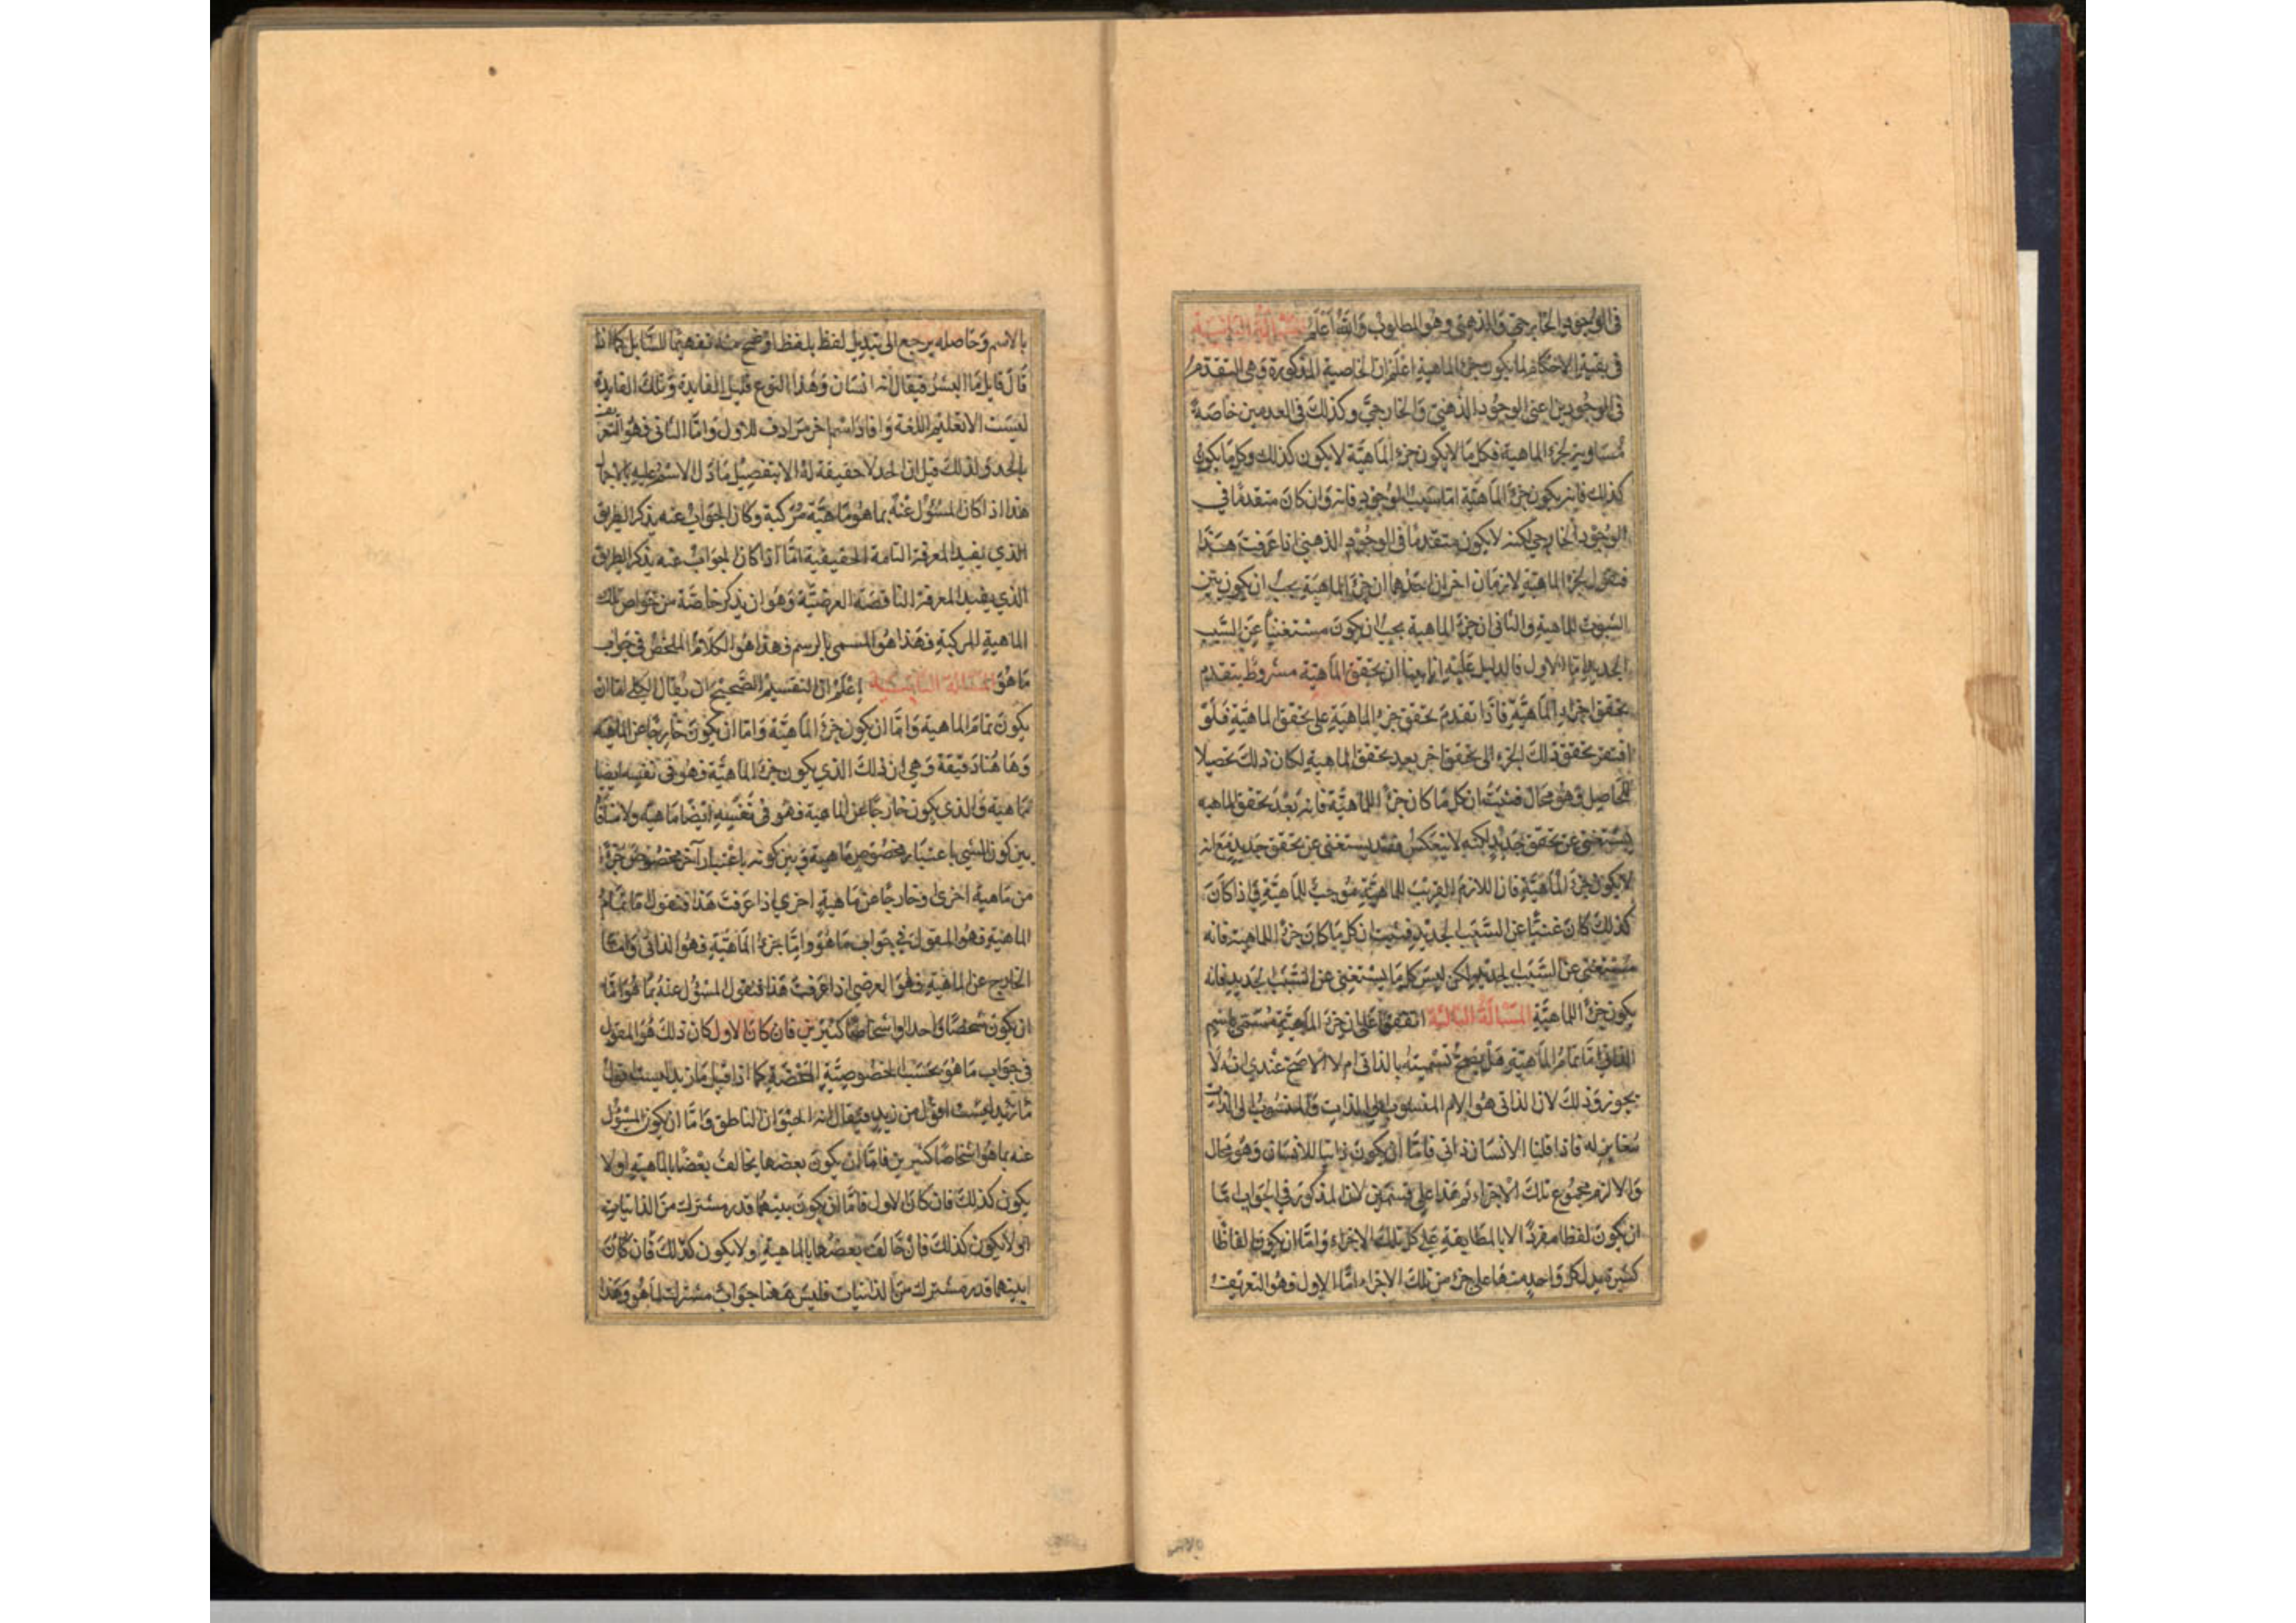 في الوجود الخارجي والذهني وهو المطلوب والله أعلم المسألة الثانية
في بقية الاحكام لما يكون جزء الماهية اعلم ان الخاصية المذكورة وهي التقدم
في الوجودين اعني الوجود الذهني والخارجي وكذلك في العدمين خاصة
مساوية لجزء الماهية فكل ما لا يكون جزء الماهية لا يكون كذلك وكل ما يكون
كذلك فانه يكون جزء الماهية اما سبب الوجود فانه وان كان متقدما في
الوجود الخارجي لكنه لا يكون متقدما في الوجود الذهني اذا عرفت هذا
فنقول لجزء الماهية لازمان اخران احدهما ان جزء الماهية يجب ان يكون بين
الثبوت للماهية والثاني ان جزء الماهية يجب ان يكون مستغنيا عن السبب
الجديد اما الاول فالدليل عليه انا بينا ان تحقق الماهية مشروط بتقدم
تحقق اجزاء الماهية فاذا تقدم تحقق جزء الماهية على تحقق الماهية فلو
افتقر تحقق ذلك الجزء الى تحقق اخر بعد تحقق الماهية لكان ذلك تحصيلا
للحاصل وهو محال فثبت ان كل ما كان جزءا للماهية فانه بعد تحقق الماهيه
يستغني عن تحقق جديد لكنه لا ينعكس فقد يستغني عن تحقق جديد مع انه
لا يكون جزء الماهية فان اللازم القريب للماهية موجب للماهية واذا كان
كذلك كان غنيا عن السبب الجديد فثبت ان كل ما كان جزء الماهية فانه
مستغني عن السبب الجديد ولكن ليس كل ما يستغني عن السبب الجديد فانه
يكون جزءا للماهية المسألة الثالثة اتفقوا على ان جزء الماهية مسمى باسم
الذاتي اما تمام الماهية فهل يصح تسميته بالذاتي ام لا الاصح عندي انه لا
يجوز وذلك لان الذاتي هو الامر المنسوب الى الذات والمنسوب الى الذات
مغاير له فاذا قلنا الانسان ذاتي فاما ان يكون ذاتيا للانسان وهو محال
والا لزم مجموع تلك الاجزاء ثم هذا على قسمين لان المذكور في الجواب اما
ان يكون لفظا مفردا الا بالمطابقة على كل تلك الاجزاء واما ان يكون الفاظا
كثيرة يدل كل واحد منها على جزء من تلك الاجزاء اما الاول فهو التعريف
بالاسم
بالاسم وحاصله يرجع الى تبديل لفظ بلفظ اوضح منه تفهيما للسايل كما اذا
قال قايل ما البشر فيقال انه انسان وهذا النوع قليل الفايدة وتلك الفايدة
ليست الا تعليم اللغة وافاد اسما اخر مرادف للاول واما الثاني فهو التعريف
بالحد ولذلك قيل ان الحد لا حقيقة له الا بتفصيل ما دل الاسم عليه بالاجمال
هذا اذا كان المسئول عنه بما هو ماهية مركبة وكان الجواب عنه بذكر الطريق
الذي يفيد المعرفة التامة الحقيقية اما اذا كان الجواب عنه بذكر الطريق
الذي يفيد المعرفة الناقصة العرضية وهو ان يذكر خاصة من خواص تلك
الماهية المركبة فهذا هو المسمى بالرسم فهذا هو الكلام الملخص في جواب
ما هو المسألة اعلم ان التقسيم الصحيح ان يقال الكلي اما ان
يكون تمام الماهية واما ان يكون جزء الماهية واما ان يكون خارجا عن الماهيه
وهاهنا دقيقة وهي ان ذلك الذي يكون جزء الماهية فهو في نفسه ايضا
ماهية والذي يكون خارجا عن الماهية فهو في نفسه ايضا ماهية ولا منافاة
بين كون الشي باعتبار مخصوص ماهية وبين كونه باعتبار آخر مخصوص جزءا
من ماهية اخرى وخارجا من ماهية اخري اذا عرفت هذا فنقول اما تمام
الماهية فهو المقول في جواب ما هو واما جزء الماهية فهو الذاتي واما
الخارج عن الماهية فهو العرضي اذا عرفت هذا فنقول المسئول عنه بما هو اما
ان يكون شخصا واحدا او اشخاصا كثيرين فان كان الاول كان ذلك هو المقول
في جواب ما هو بحسب الخصوصية المحضة كما اذا قيل ما زيد لست اقول
ما زيد لست اقول من زيد فيقال انه الحيوان الناطق واما ان يكون المسئول
عنه بما هو اشخاصا كثيرين فاما ان يكون بعضها يخالف بعضا بالماهية او لا
يكون كذلك فان كان الاول فاما ان يكون بينهما قدر مشترك من الذاتيات
او لا يكون كذلك فان خالف بعضها بالماهية ولا يكون كذلك فان كان
بينهما قدر مشترك من الذاتيات فليس ههنا جواب مشترك لما هو وهذا